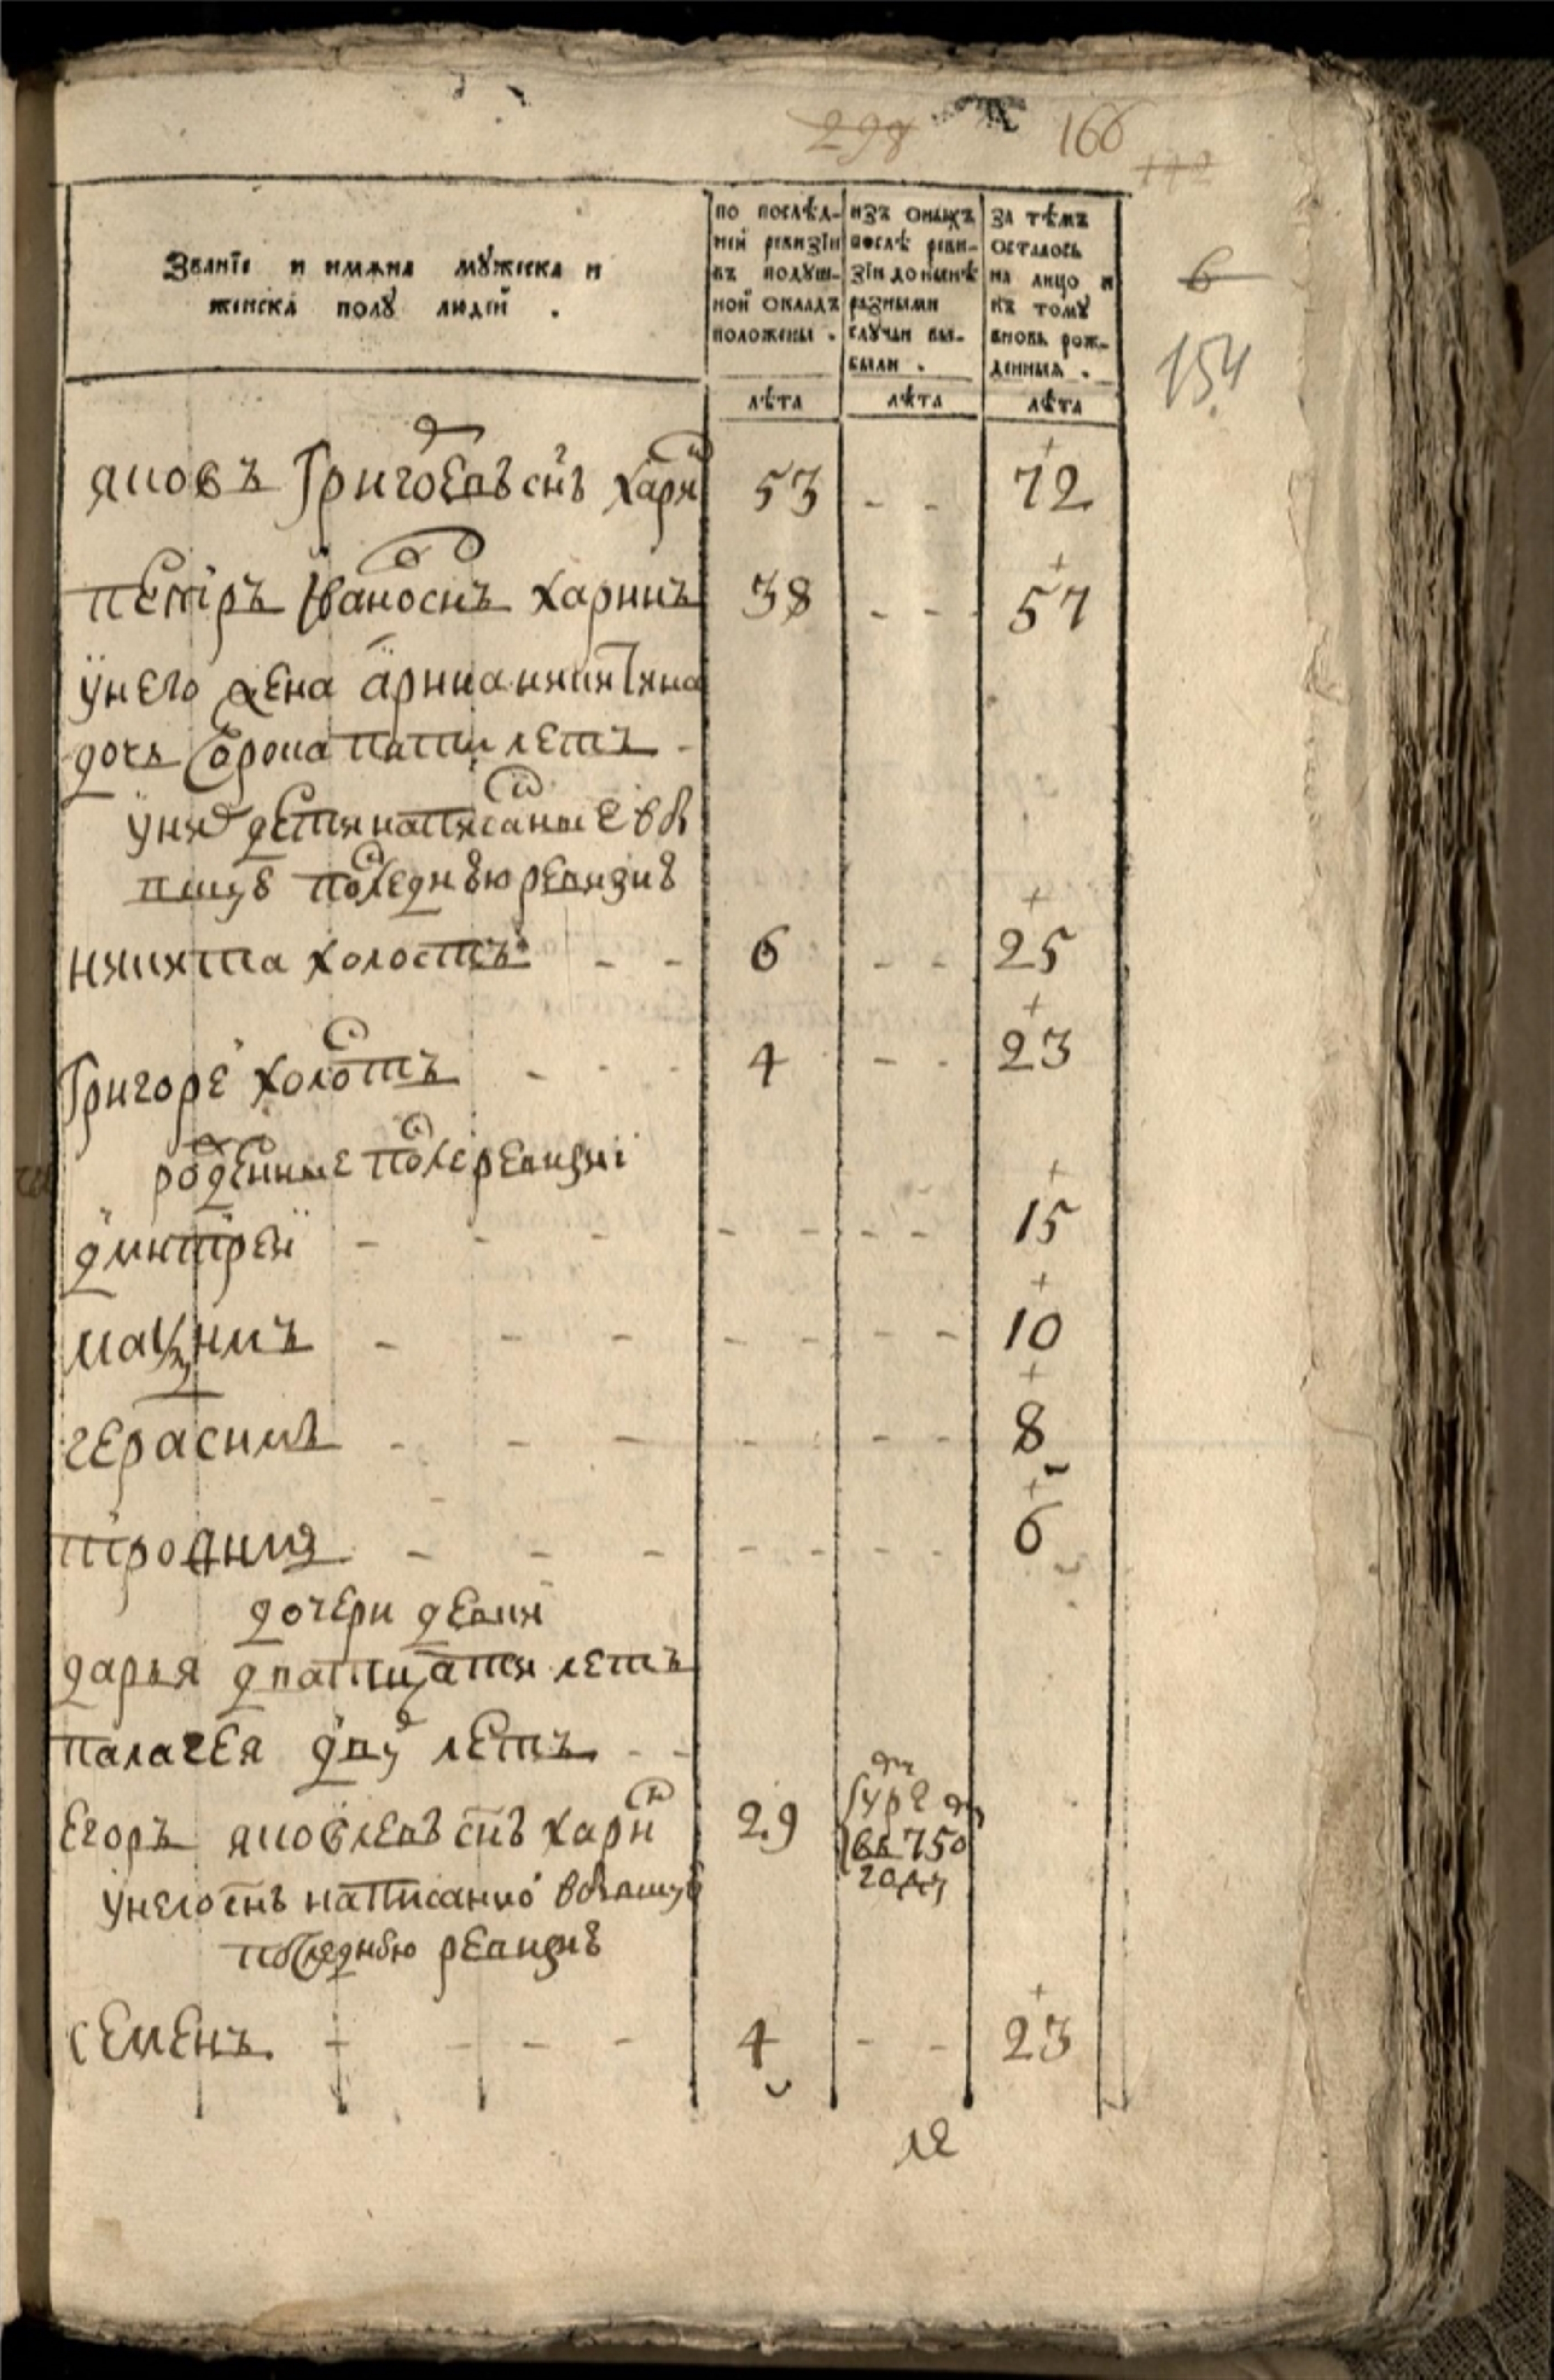 298 166
172
Званїе и имѧна мꙋжска и
женска полꙋ людей .
по послѣд-
ней ревизїи
въ подꙋш-
ной окладъ
положены .
изъ оныхъ
послѣ реви-
зїи до нынѣ
разными
случаи вы-
были .
за тѣмъ
осталось
на лицо и
къ томꙋ
вновь рож-
денныѧ .
6
154
лѣта лѣта лѣта
яковъ Григоревъ снъ Харин 53 - - 72
петръ Иваноснъ харинъ 38 - - 57
у него жена арина никитина
дочь
летъ -
у них дети написание в
последнюю ревизию
никита холостъ - - 6 - - 25
Григоре холостъ - - - 4 - - 23
рожденные после ревизиї
дмитреи - - - - - - - 15
макзимъ - - - - - - - 10
герасимъ - - - - - - 8
трофимъ - - - - - - - 6
дочери девки
дарья дватцати летъ
палагея двух летъ - -
Егоръ яковлевъ снъ харин 29
въ 750
году
у него снъ написанно в
последнюю ревизию
семенъ - - - - 4 - - 23
ле